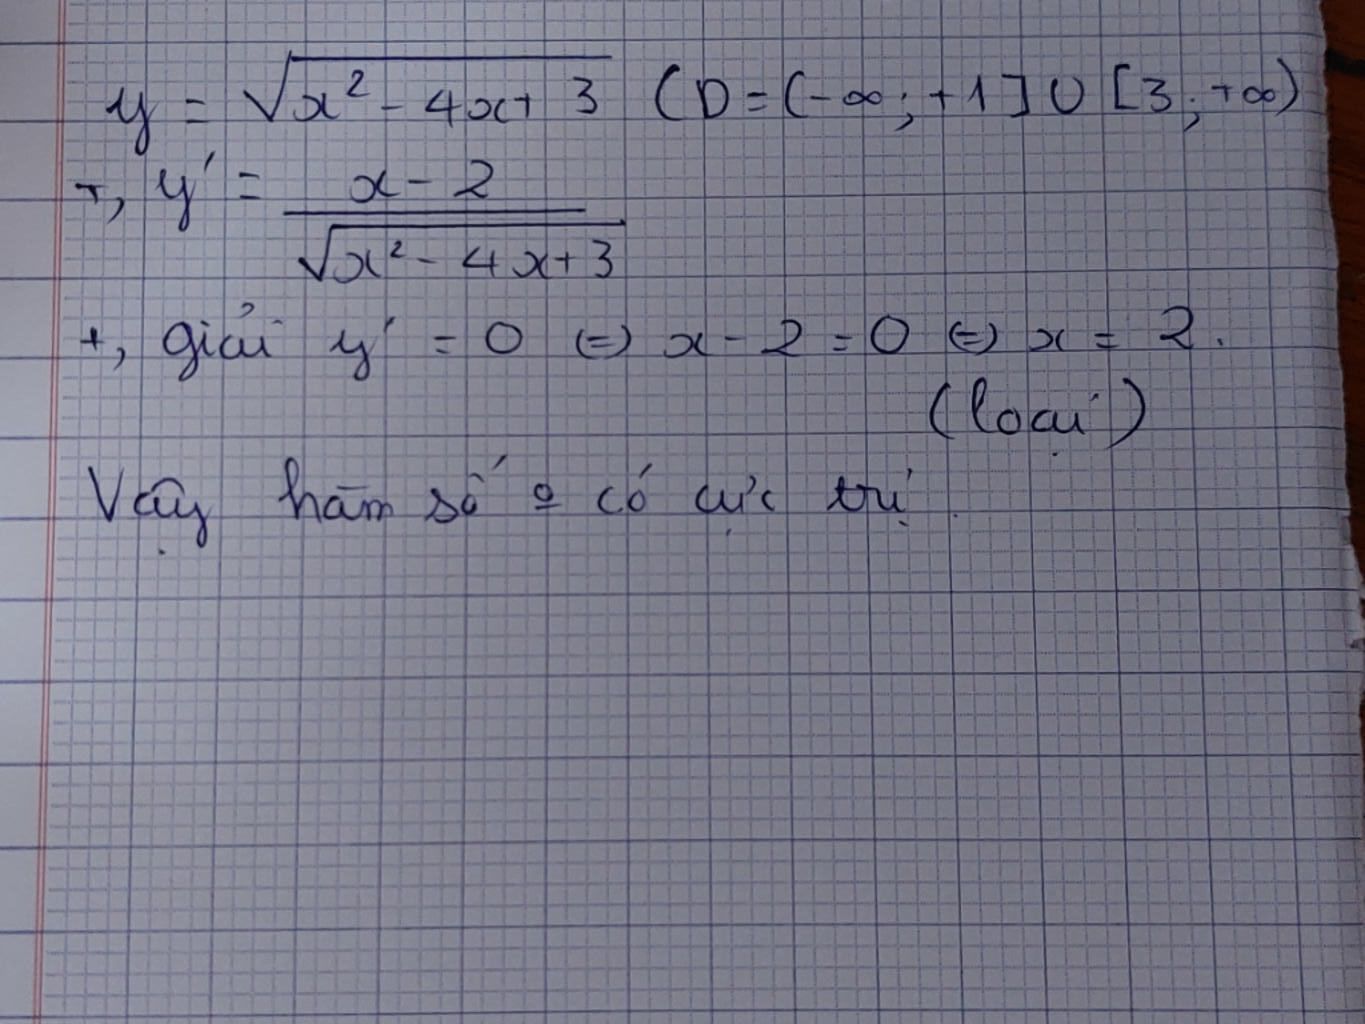 y = √(x² - 4x + 3) (D = (-∞; +1] ∪ [3; +∞)
+, y' = (x - 2)/√(x² - 4x + 3)
+, giải y' = 0 (=) x - 2 = 0 (=) x = 2.
(loại)
Vậy hàm số o có cực trị.